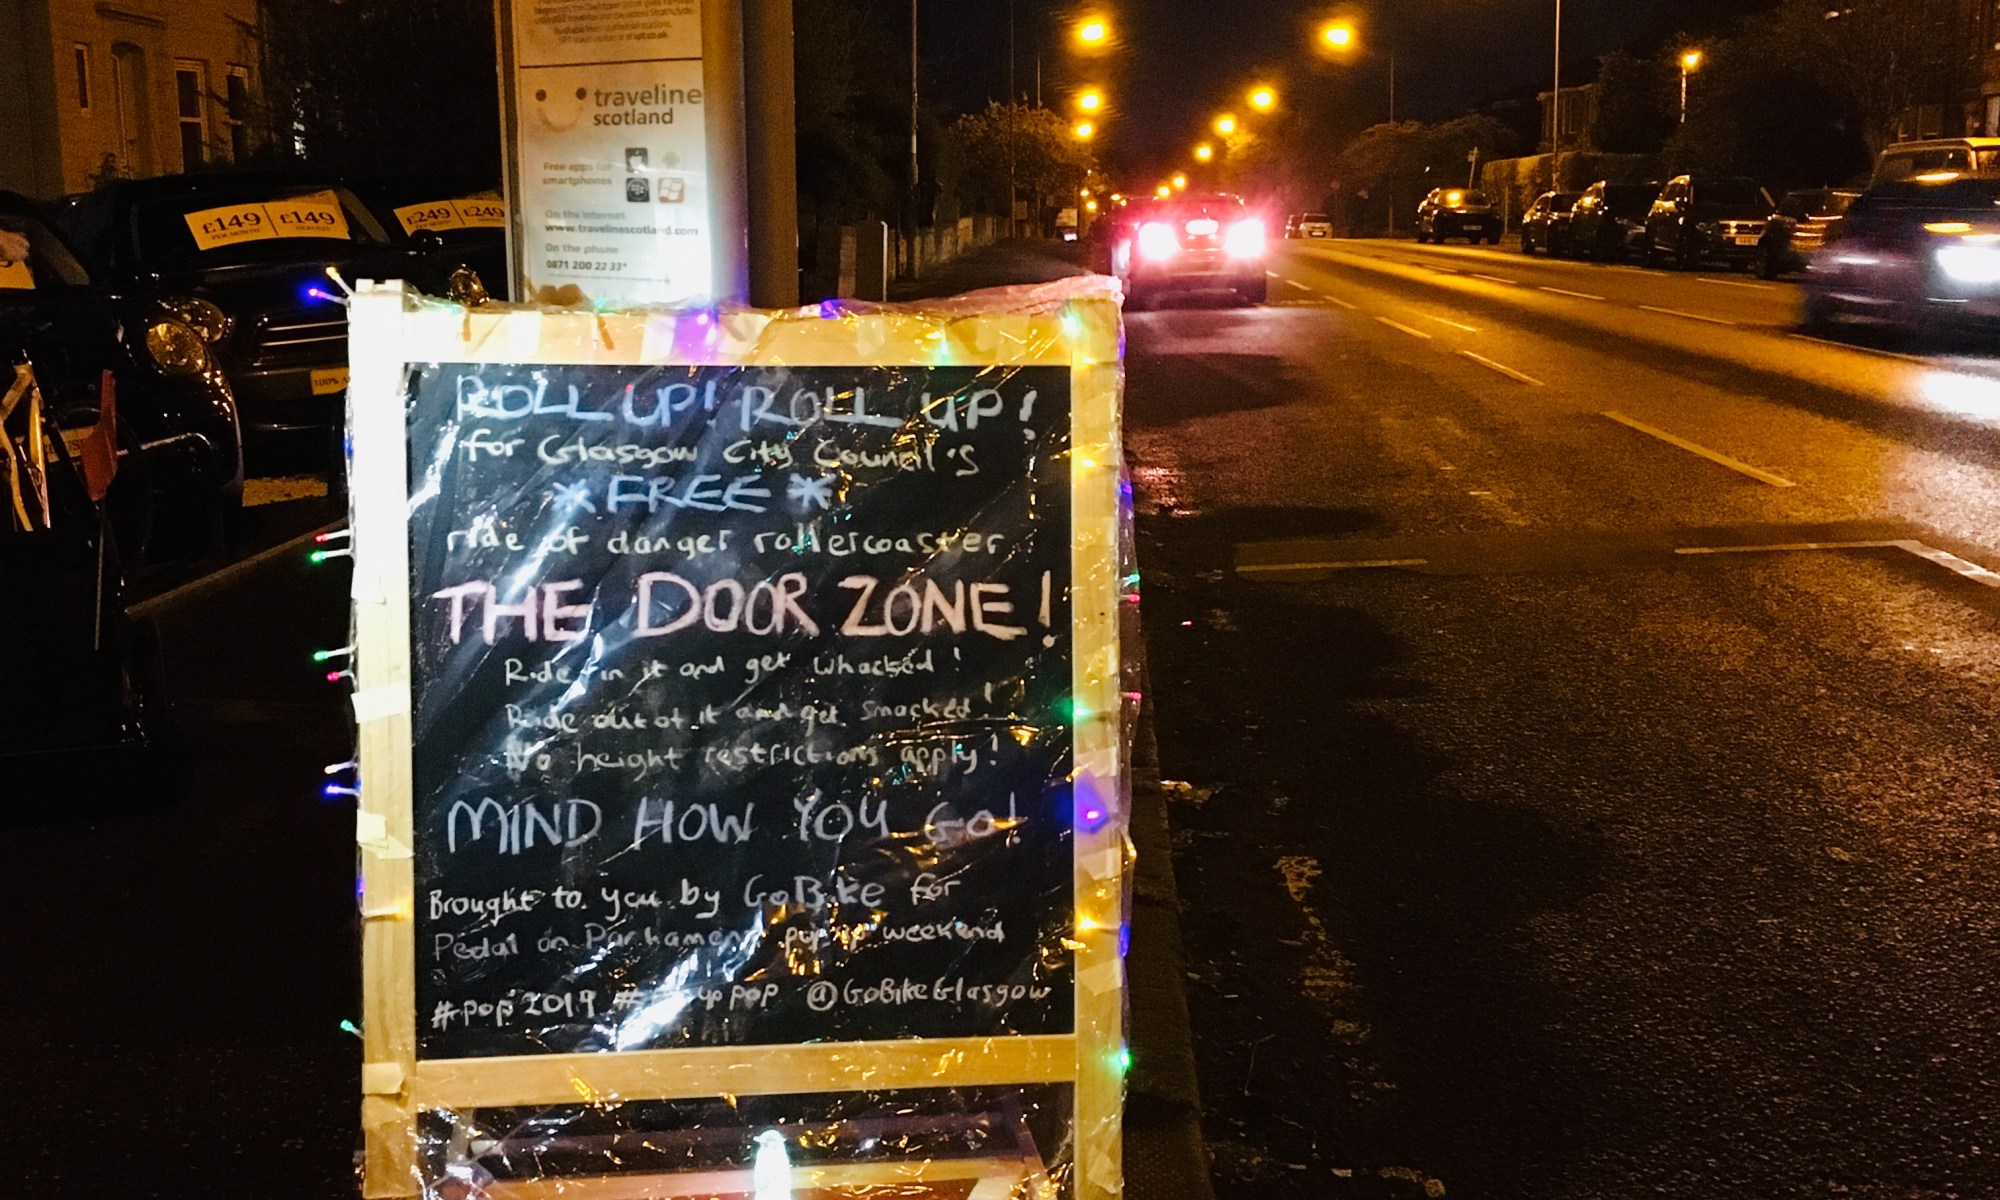 traveline
scotland
Free apps for
smartphones
On the internet
www.travelinescotland.com
On the phone
0871 200 22 33*
£149 £149
PER MONTH DEPOSIT
£249 £249
100%
ROLL UP! ROLL UP!
for Glasgow City Council's
*FREE*
ride of danger rollercoaster
THE DOOR ZONE!
Ride in it and get whacked!
Ride out of it and get smacked!
No height restrictions apply!
MIND HOW YOU GO!
Brought to you by GoBike for
Pedal on Parliament pop up weekend
#pop2019 @GoBikeGlasgow